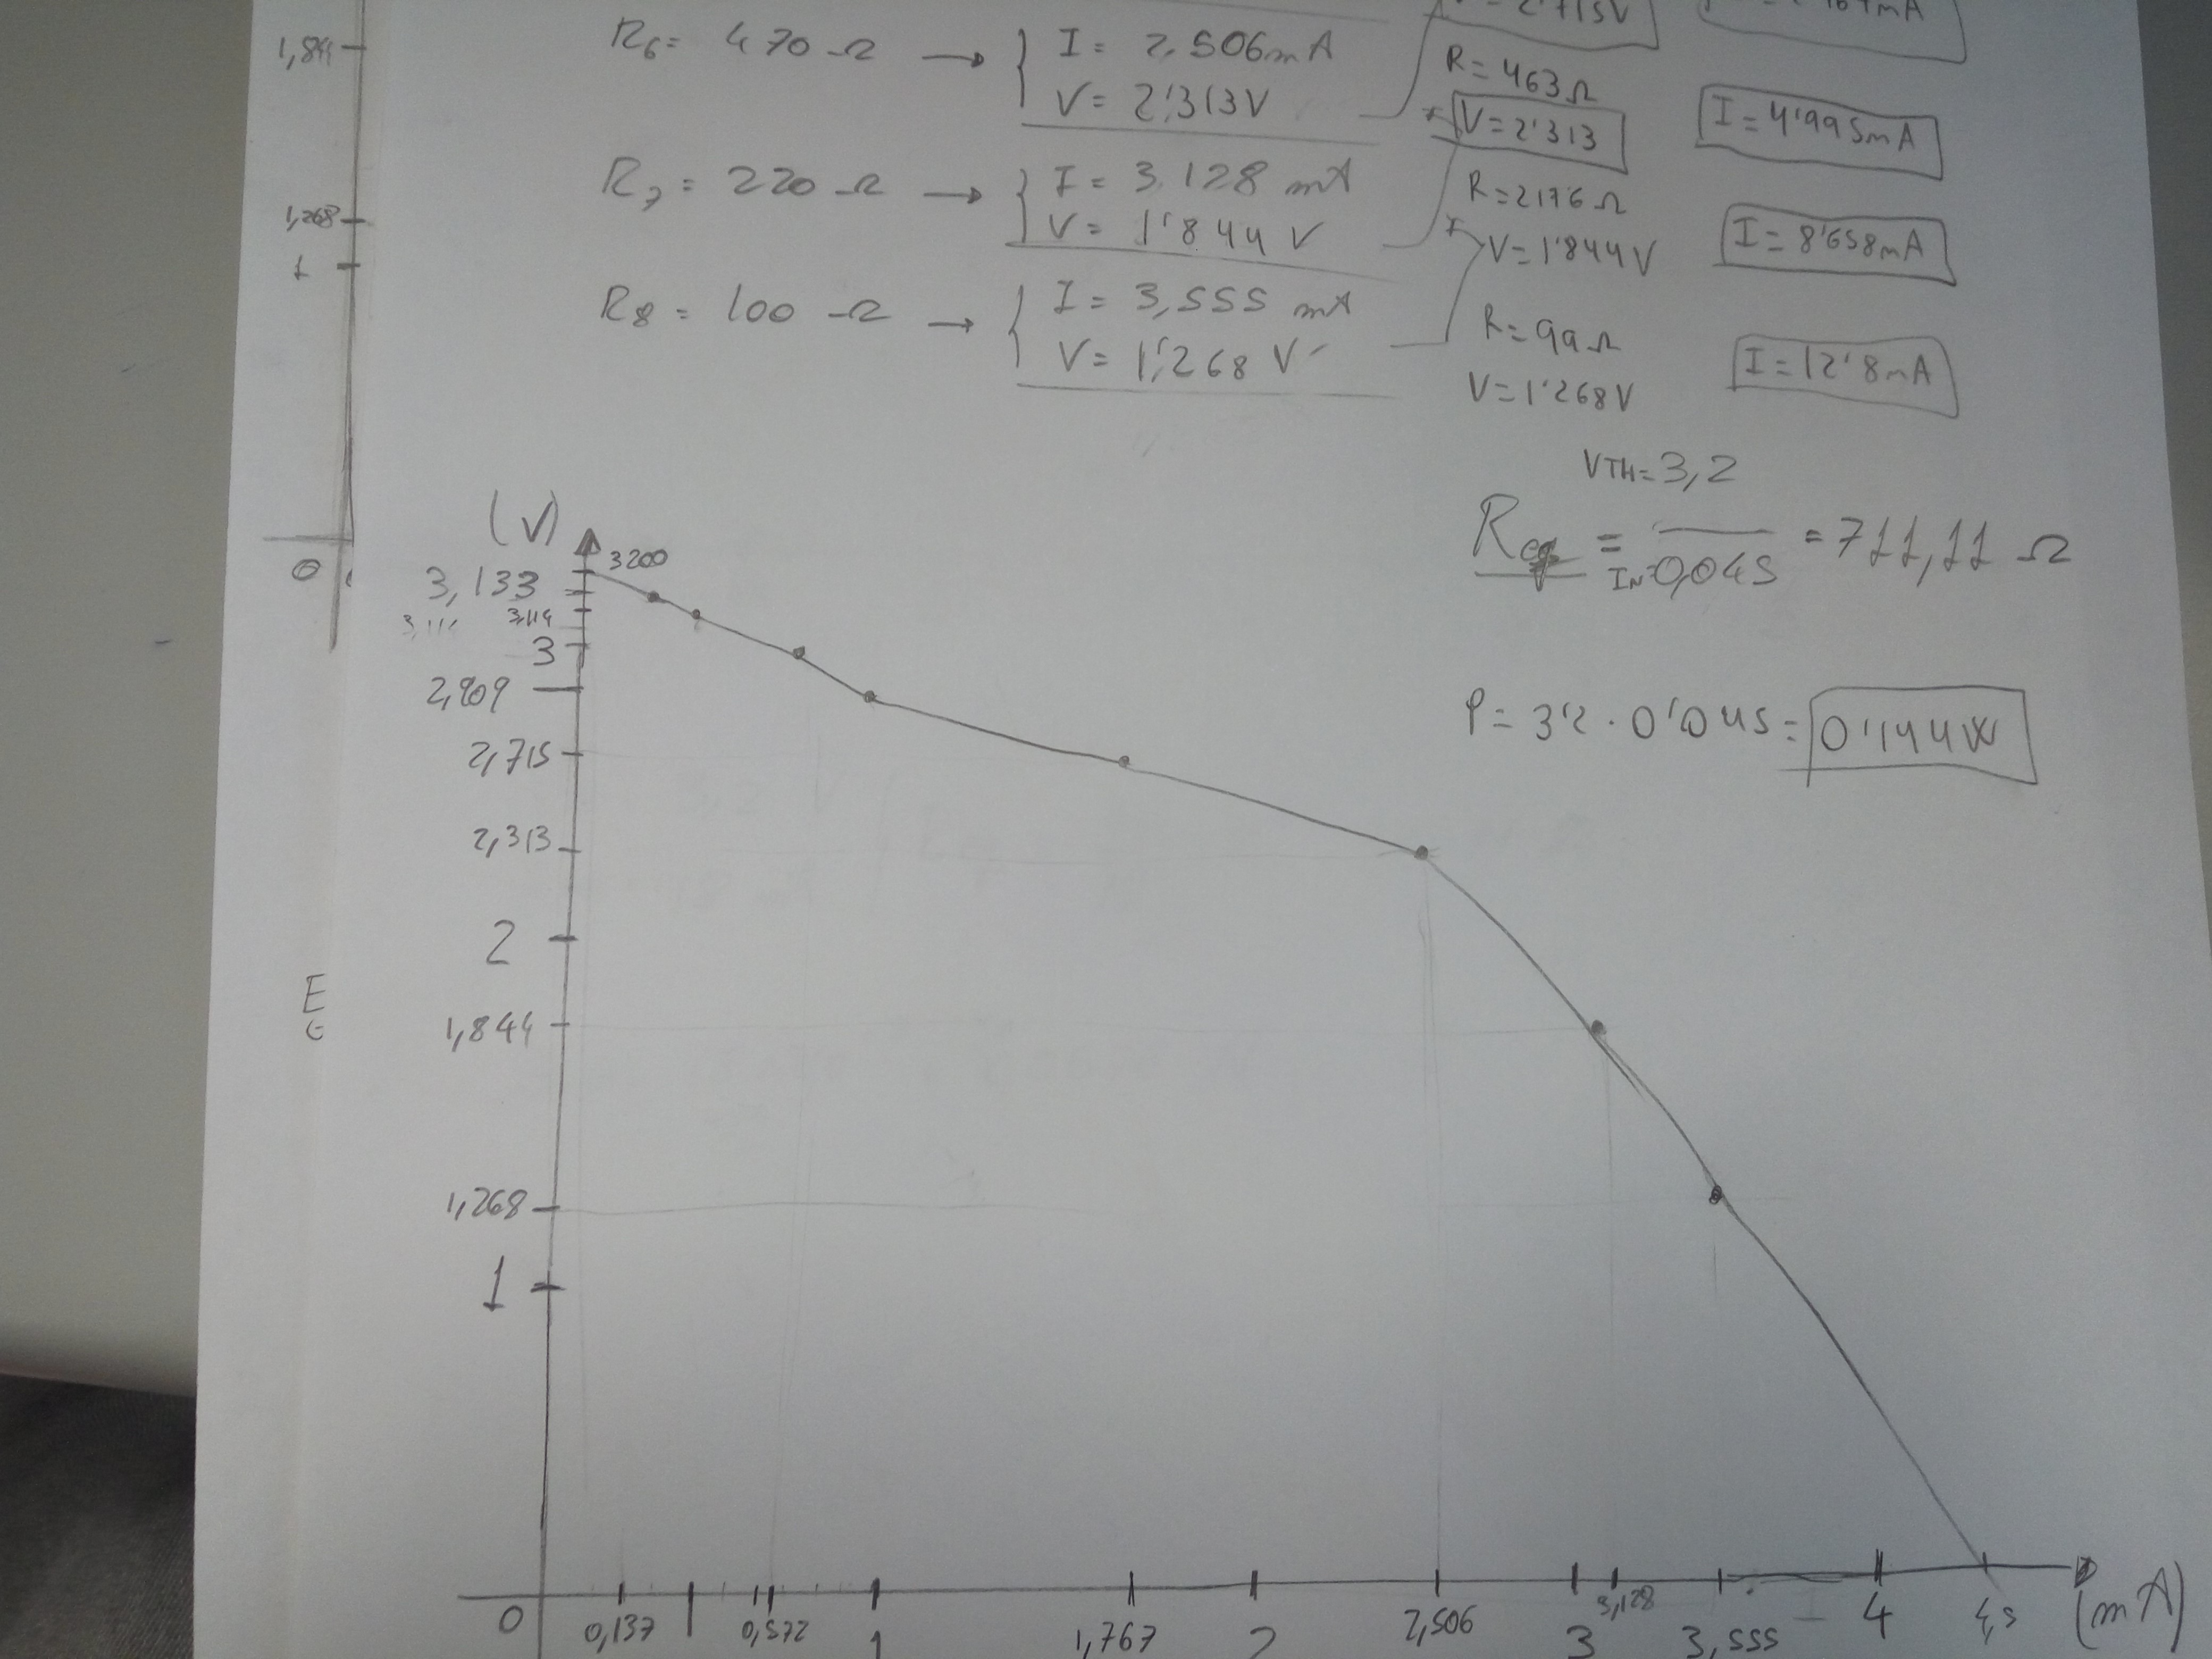 1,844
1,268
1
0
R6= 470 Ω → { I= 2,506mA
V= 2'313V
R7= 220 Ω → { I= 3.128 mA
V= 1'844 V
R8= 100 Ω → { I= 3,555 mA
V= 1'268 V
= 2'715V
R= 463Ω
V=2'313
I=4'995mA
R=217'6 Ω
V=1'844V
I=8'658mA
R=99Ω
V=1'268V
I=12'8mA
VTH=3,2
Req = IN=0,045 = 711,11 Ω
P= 3'2 · 0'045= 0'144W
(V)
3200
3,133
3,114
3
2,909
2,715
2,313
2
1,844
1,268
1
E
0 0,137 0,572 1 1,767 2 2,506 3 3,128 3,555 4 4,5 (mA)